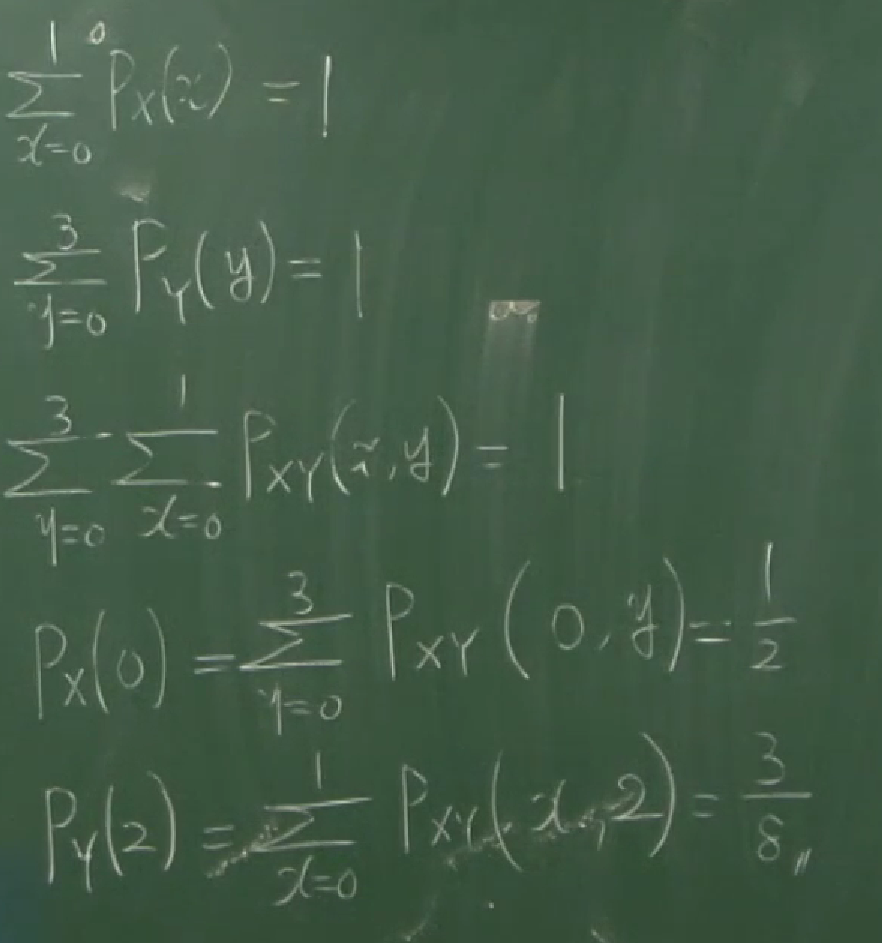 \sum_{x=0}^{1} P_X(x) = 1
\sum_{y=0}^{3} P_Y(y) = 1
\sum_{y=0}^{3} \sum_{x=0}^{1} P_{XY}(x,y) = 1
P_X(0) = \sum_{y=0}^{3} P_{XY}(0,y) = \frac{1}{2}
P_Y(2) = \sum_{x=0}^{1} P_{XY}(x,2) = \frac{3}{8}〃